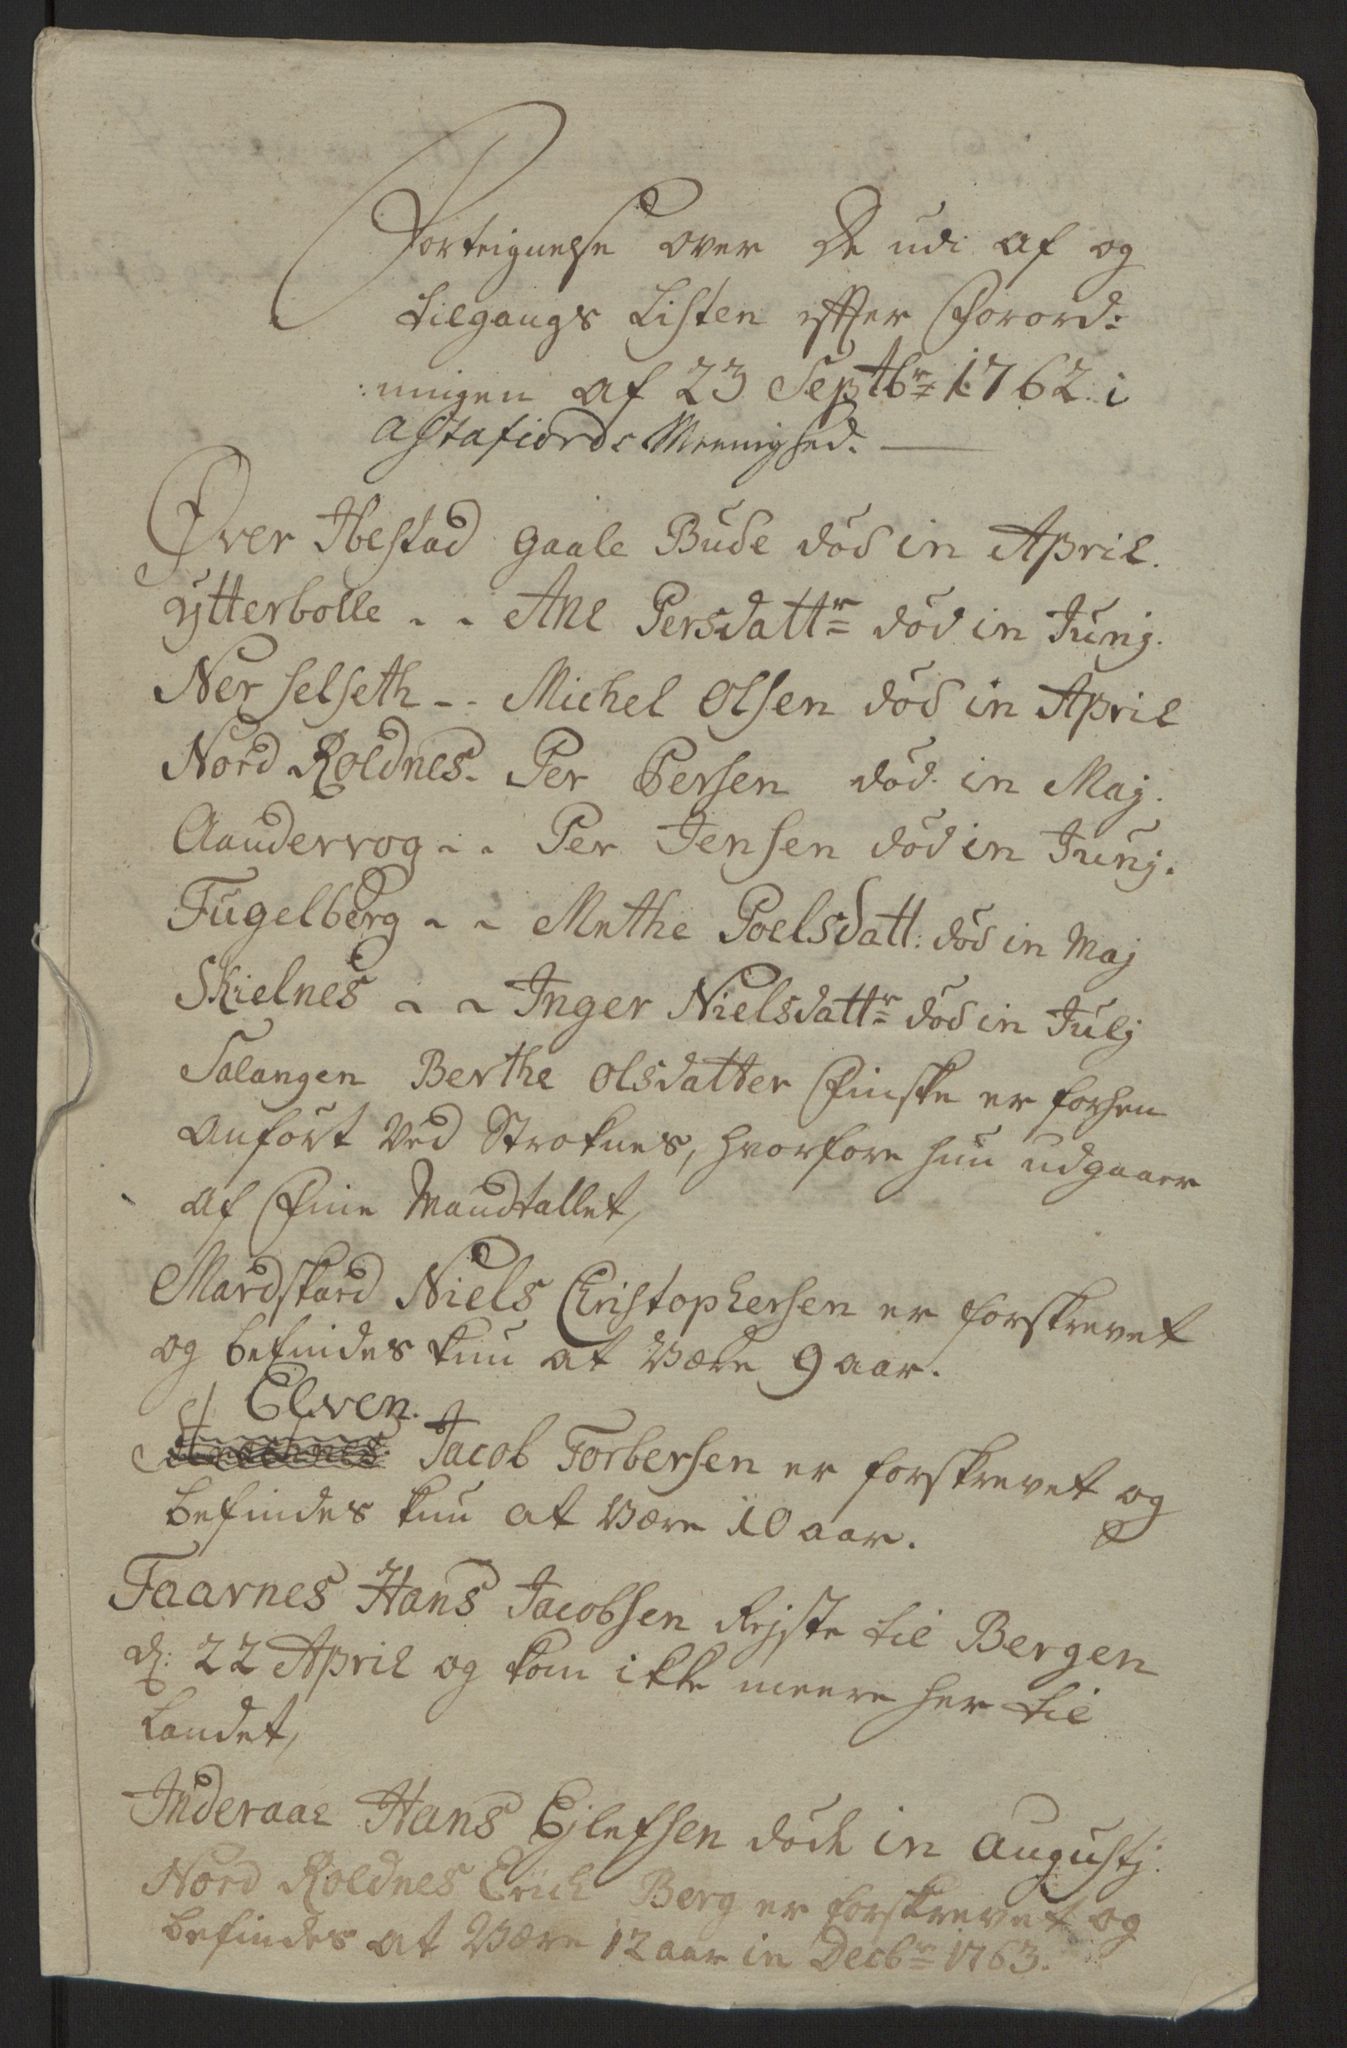 Forteignelse over De udi af og
tilgangs Listen efter Forord:
ningen af 23 Septbr: 1762 i
Astafiords Meenighed.
Over Ibestad Gaale Bude død in April.
Ytterbolle - - Ane Persdattr død in Junj.
Ner Selseth - - Michel Olsen død in April
Nord Roldnes - Per Persen død in Maj.
Aandervog - - Per Jensen død in Junj.
Fugelberg - - Methe Poelsdatt: død in Maj
Skielnes - - Inger Nielsdattr død in Julj
Salangen Berthe Olsdatter Finske er forhen
anført ved Stroknes, hvorfore hun udgaaer
af Fine Mandtallet,
Mardskard Niels Christophersen er forskrevet
og befindes kun at være 9 aar.
Elven.
Jacob Torbersen er forskrevet og
befindes kun at være 10 aar.
Faarnes Hans Jacobsen Rejste til Bergen
d: 22 April og kom ikke meere her til
Landet,
Inderaae Hans Ejlefsen døde in Augustj.
Nord Roldnes Erich Berg er forskrevet og
befindes at være 12 aar in Decbr 1763.